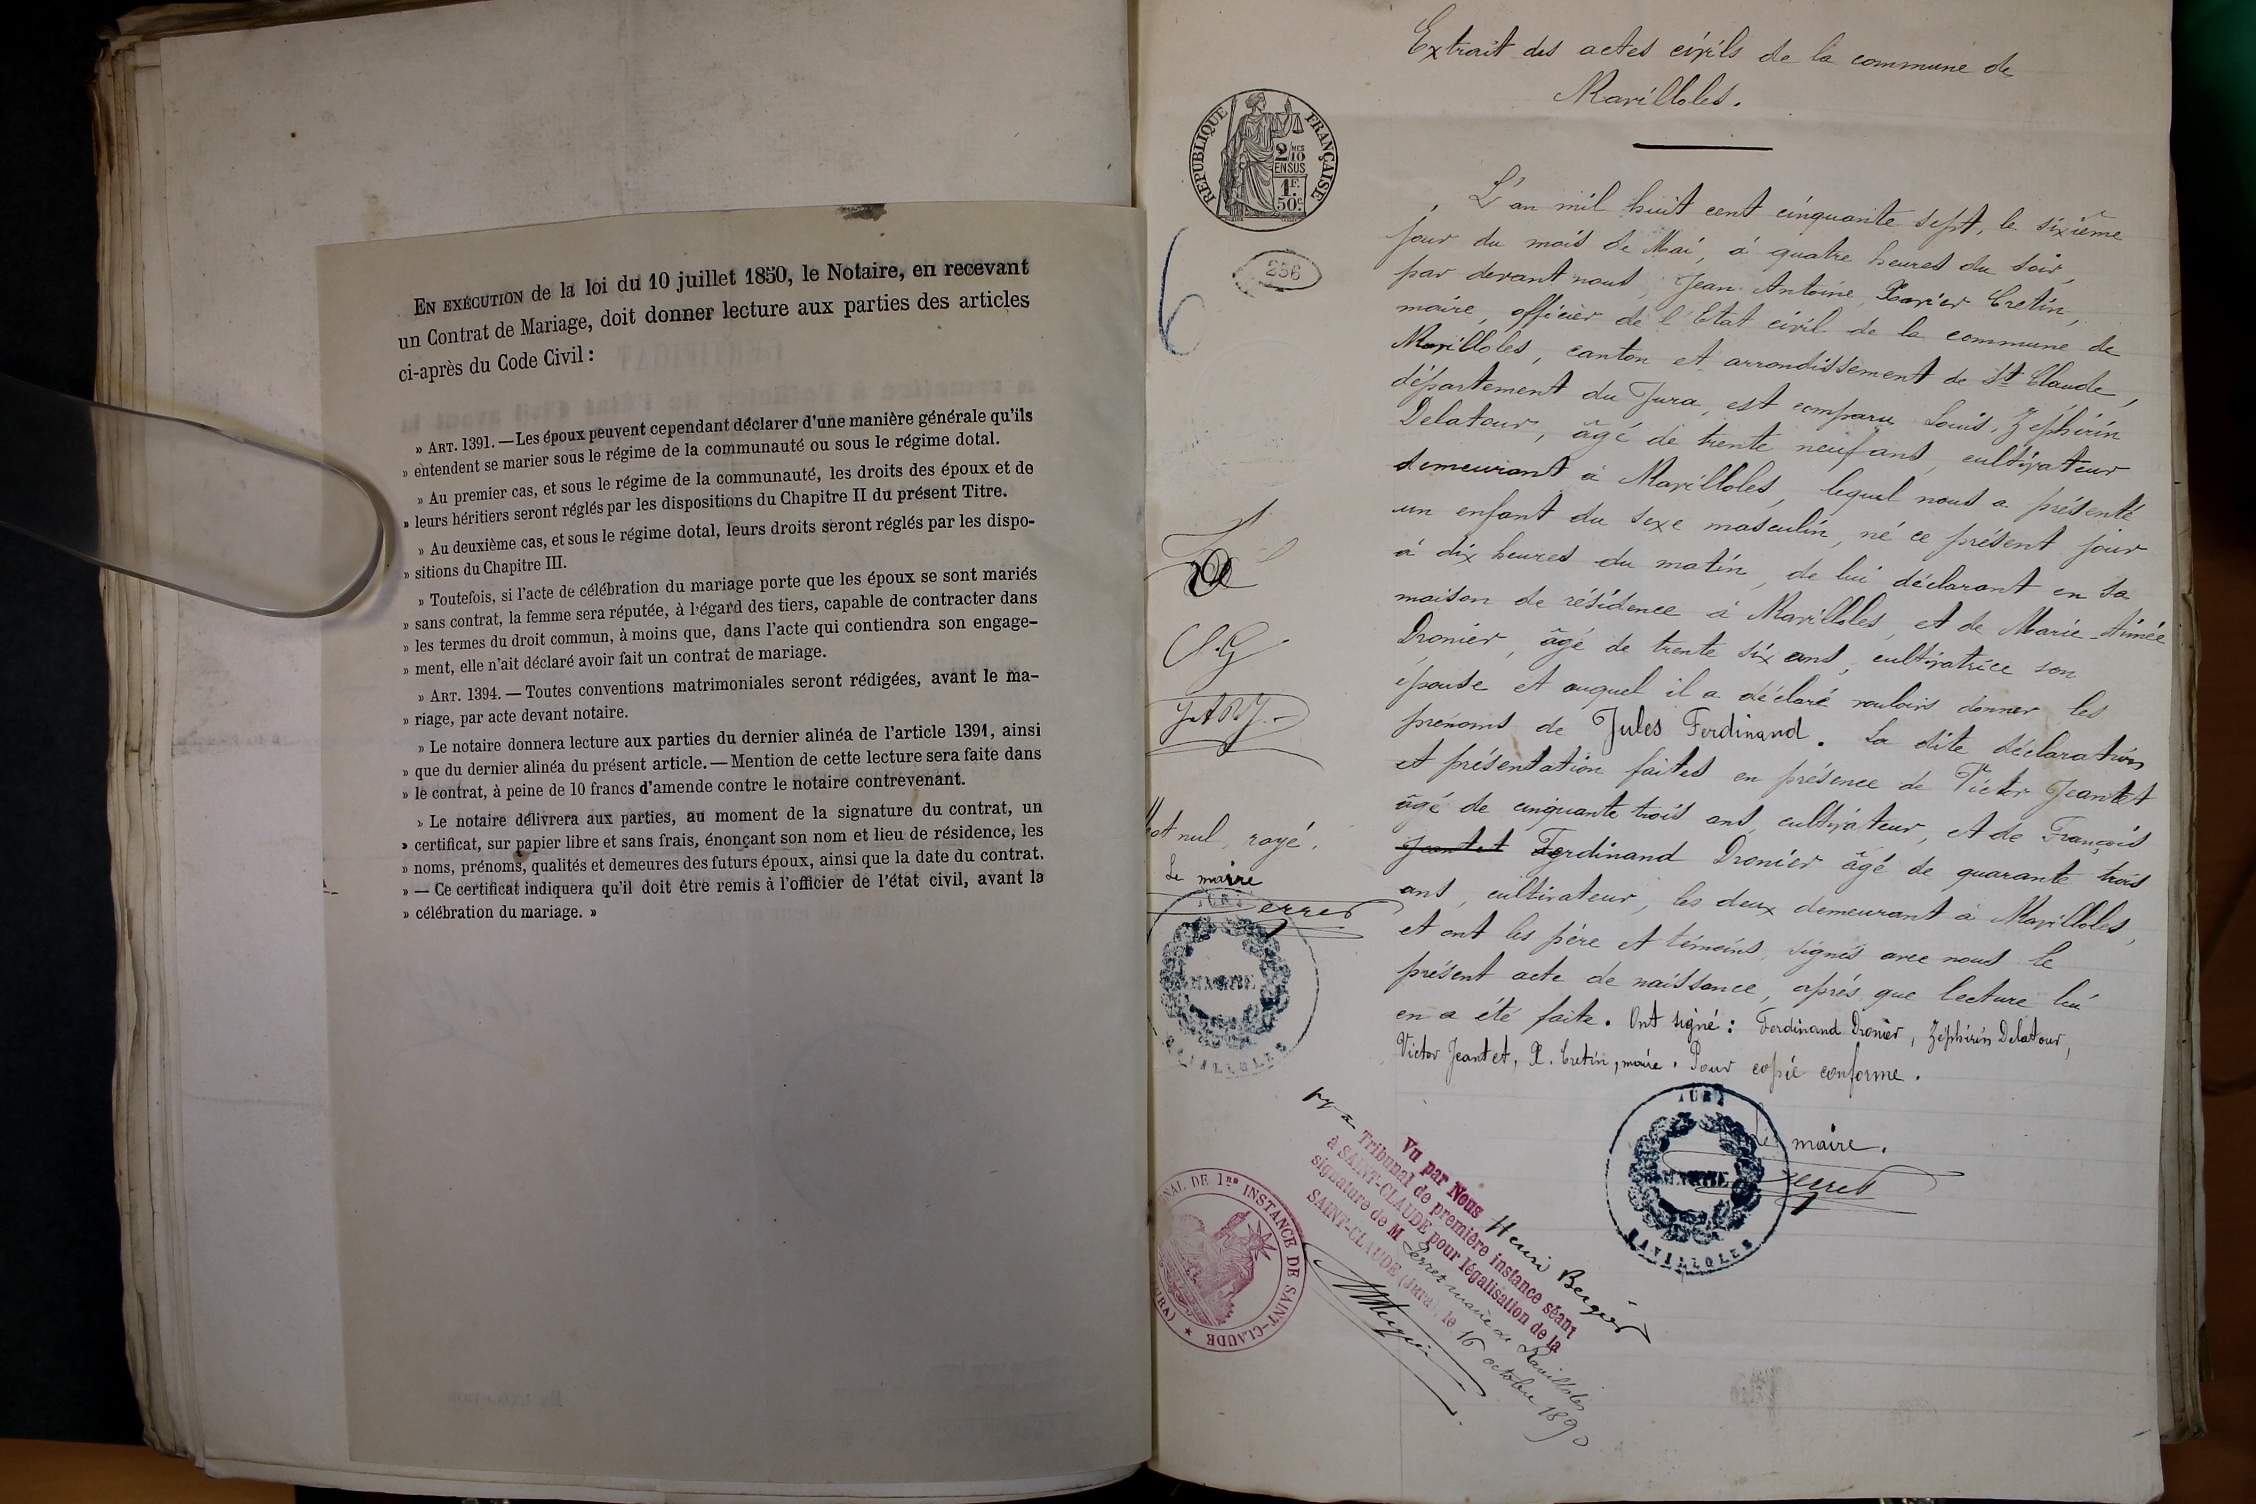 EN EXÉCUTION de la loi du 10 juillet 1850, le Notaire, en recevant
un Contrat de Mariage, doit donner lecture aux parties des articles
ci-après du Code Civil :
» ART. 1391. — Les époux peuvent cependant déclarer d'une manière générale qu'ils
» entendent se marier sous le régime de la communauté ou sous le régime dotal.
» Au premier cas, et sous le régime de la communauté, les droits des époux et de
» leurs héritiers seront réglés par les dispositions du Chapitre II du présent Titre.
» Au deuxième cas, et sous le régime dotal, leurs droits seront réglés par les dispo-
» sitions du Chapitre III.
» Toutefois, si l'acte de célébration du mariage porte que les époux se sont mariés
» sans contrat, la femme sera réputée, à l'égard des tiers, capable de contracter dans
» les termes du droit commun, à moins que, dans l'acte qui contiendra son engage-
» ment, elle n'ait déclaré avoir fait un contrat de mariage.
» ART. 1394. — Toutes conventions matrimoniales seront rédigées, avant le ma-
» riage, par acte devant notaire.
» Le notaire donnera lecture aux parties du dernier alinéa de l'article 1391, ainsi
» que du dernier alinéa du présent article. — Mention de cette lecture sera faite dans
» le contrat, à peine de 10 francs d'amende contre le notaire contrevenant.
» Le notaire délivrera aux parties, au moment de la signature du contrat, un
» certificat, sur papier libre et sans frais, énonçant son nom et lieu de résidence, les
» noms, prénoms, qualités et demeures des futurs époux, ainsi que la date du contrat.
» — Ce certificat indiquera qu'il doit être remis à l'officier de l'état civil, avant la
» célébration du mariage. »
Extrait des actes civils de la commune de
Ravilloles.
RÉPUBLIQUE FRANÇAISE
2/10 MES
EN SUS
1F.
50c.
256
6
L'an mil huit cent cinquante sept, le sixième
jour du mois de Mai, à quatre heures du soir,
par devant nous, Jean Antoine Xavier Cretin,
maire, officier de l'Etat civil de la commune de
Ravilloles, canton et arrondissement de St Claude,
département du Jura, est comparu Louis, Zéphirin
Delatour, âgé de trente neuf ans, cultivateur
demeurant à Ravilloles, lequel nous a présenté
un enfant du sexe masculin, né ce présent jour
à dix heures du matin, de lui déclarant en sa
maison de résidence à Ravilloles, et de Marie-Aimée
Dronier, âgé de trente six ans, cultivatrice son
épouse et auquel il a déclaré vouloir donner les
prénoms de Jules Ferdinand. La dite déclaration
et présentation faites en présence de Victor Jeantet
âgé de cinquante trois ans, cultivateur, et de François
Jeantet Ferdinand Dronier âgé de quarante trois
ans, cultivateur, les deux demeurant à Ravilloles,
et ont les père et témoins signés avec nous le
présent acte de naissance, après que lecture lui
en a été faite. Ont signé : Ferdinand Dronier, Zéphirin Delatour,
Victor Jeantet, X. Cretin, maire. Pour copie conforme.
Le maire.
Perret
JURA
MAIRIE
RAVILLOLES
mot nul, rayé.
Le maire
Perret
JURA
MAIRIE
RAVILLOLES
Vu par Nous Henri Bergier
Tribunal de première instance séant
à SAINT-CLAUDE pour légalisation de la
signature de M Perret maire de Ravilloles
SAINT-CLAUDE (Jura), le 16 octobre 1890
DE 1re INSTANCE DE SAINT-CLAUDE